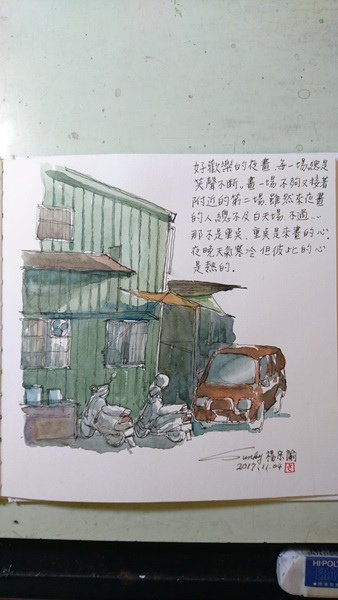 好歡樂的夜畫.每一場總是
笑聲不斷。畫一場不夠又接著
附近的第二場.雖然來夜畫
的人總不及白天場.不過…
那不是重点.重点是來畫的心.
夜晚天氣寒冷但彼此的心
是熱的.
Sunday 楊宗諭
2017.11.04
HI-POLY